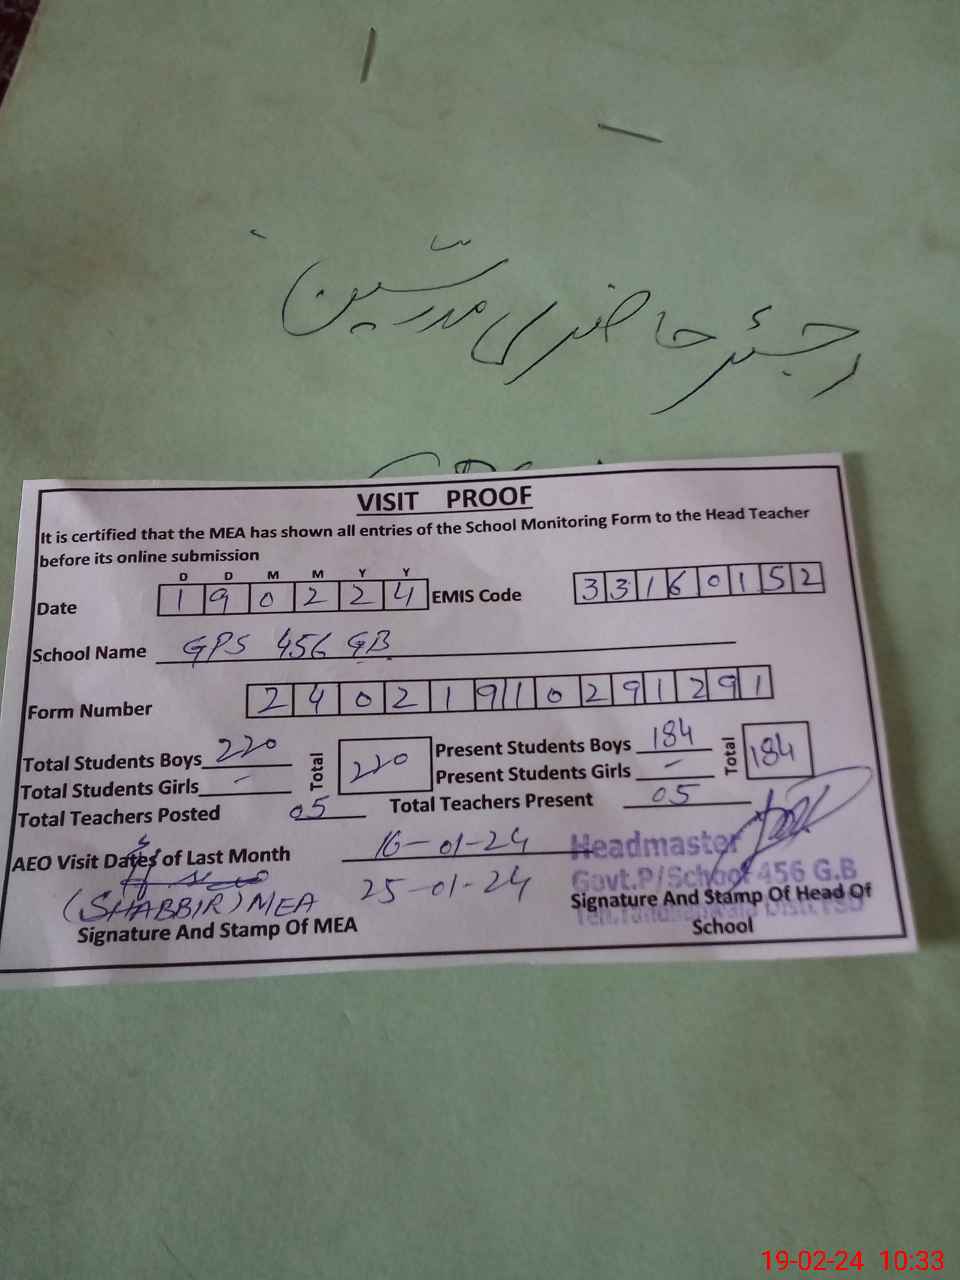 رجسٹر حاضری مدرسین
VISIT PROOF
It is certified that the MEA has shown all entries of the School Monitoring Form to the Head Teacher
before its online submission
D D M M Y Y
Date 1 9 0 2 2 4 EMIS Code 3 3 1 6 0 1 5 2
School Name GPS 456 GB
Form Number 2 4 0 2 1 9 1 0 2 9 1 2 9 1
Total Students Boys 220 Total 220 Present Students Boys 184 Total 184
Total Students Girls - Present Students Girls -
Total Teachers Posted 05 Total Teachers Present 05
AEO Visit Dates of Last Month 16-01-24
25-01-24
(SHABBIR) MEA
Signature And Stamp Of MEA
Headmaster
Govt.P/School 456 G.B
Signature And Stamp Of Head Of
School
19-02-24 10:33